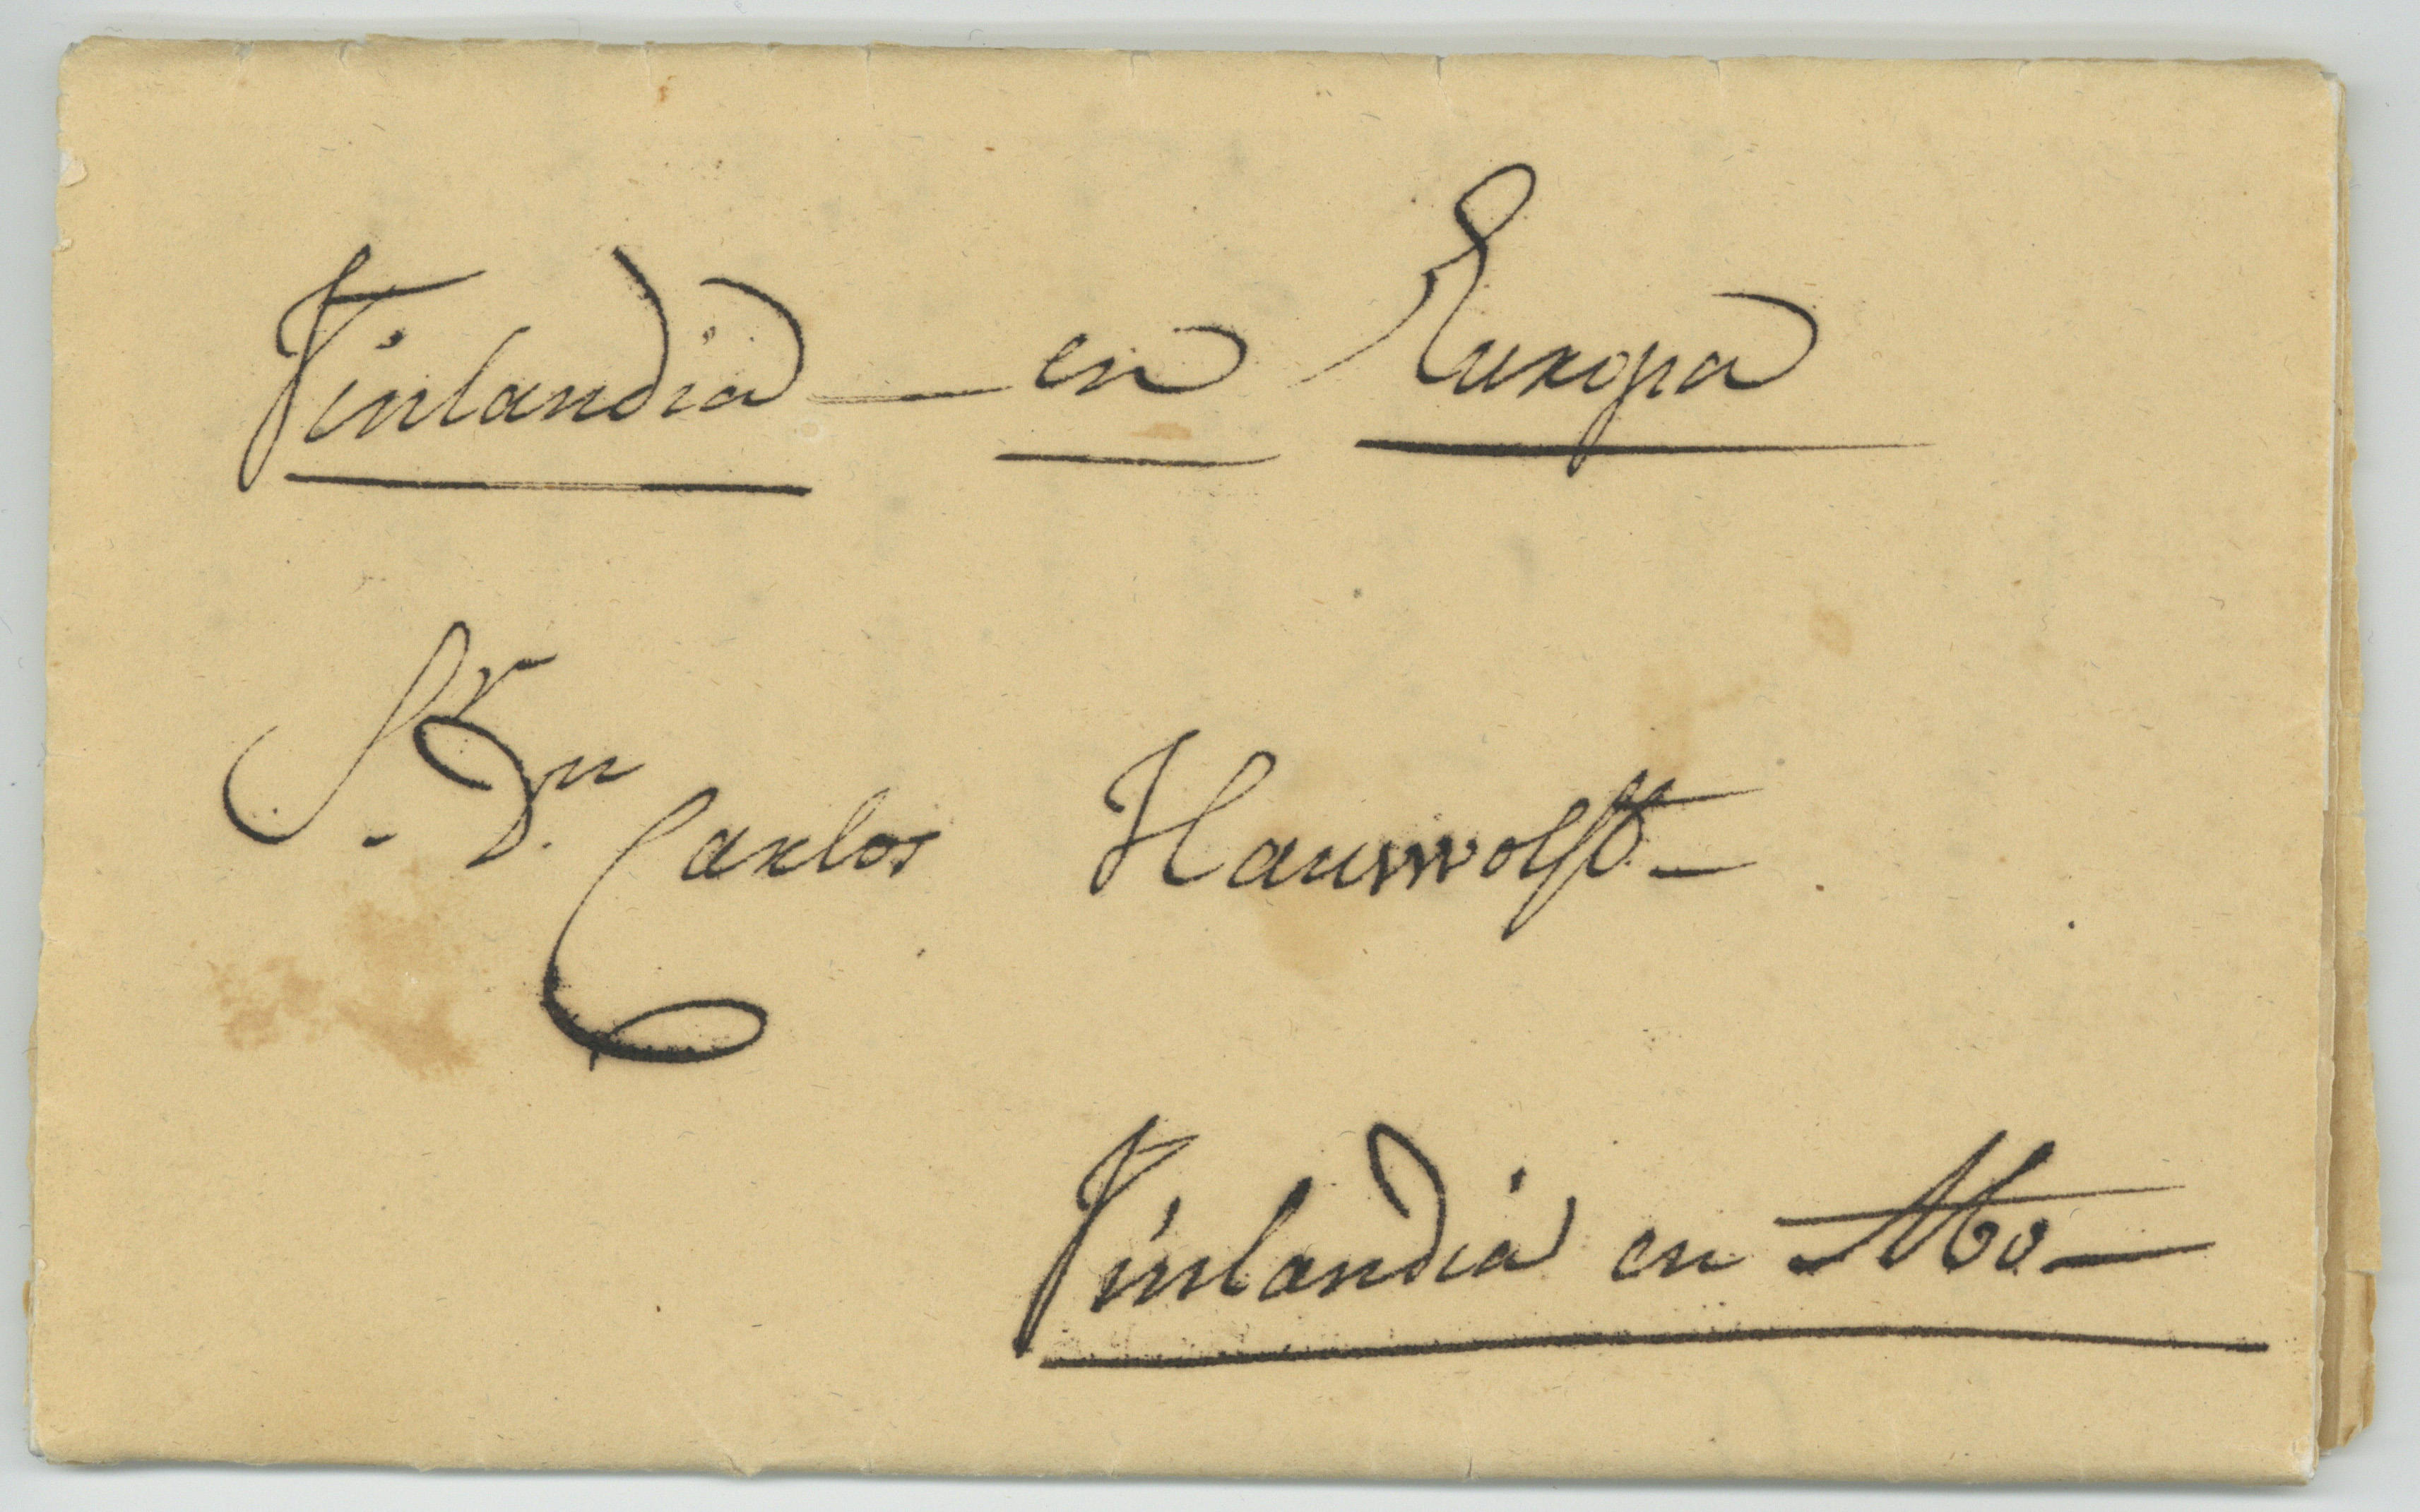 Finlandia — en Europa
Sr. Dn. Carlos Hauswolff —
Finlandia en Abo —